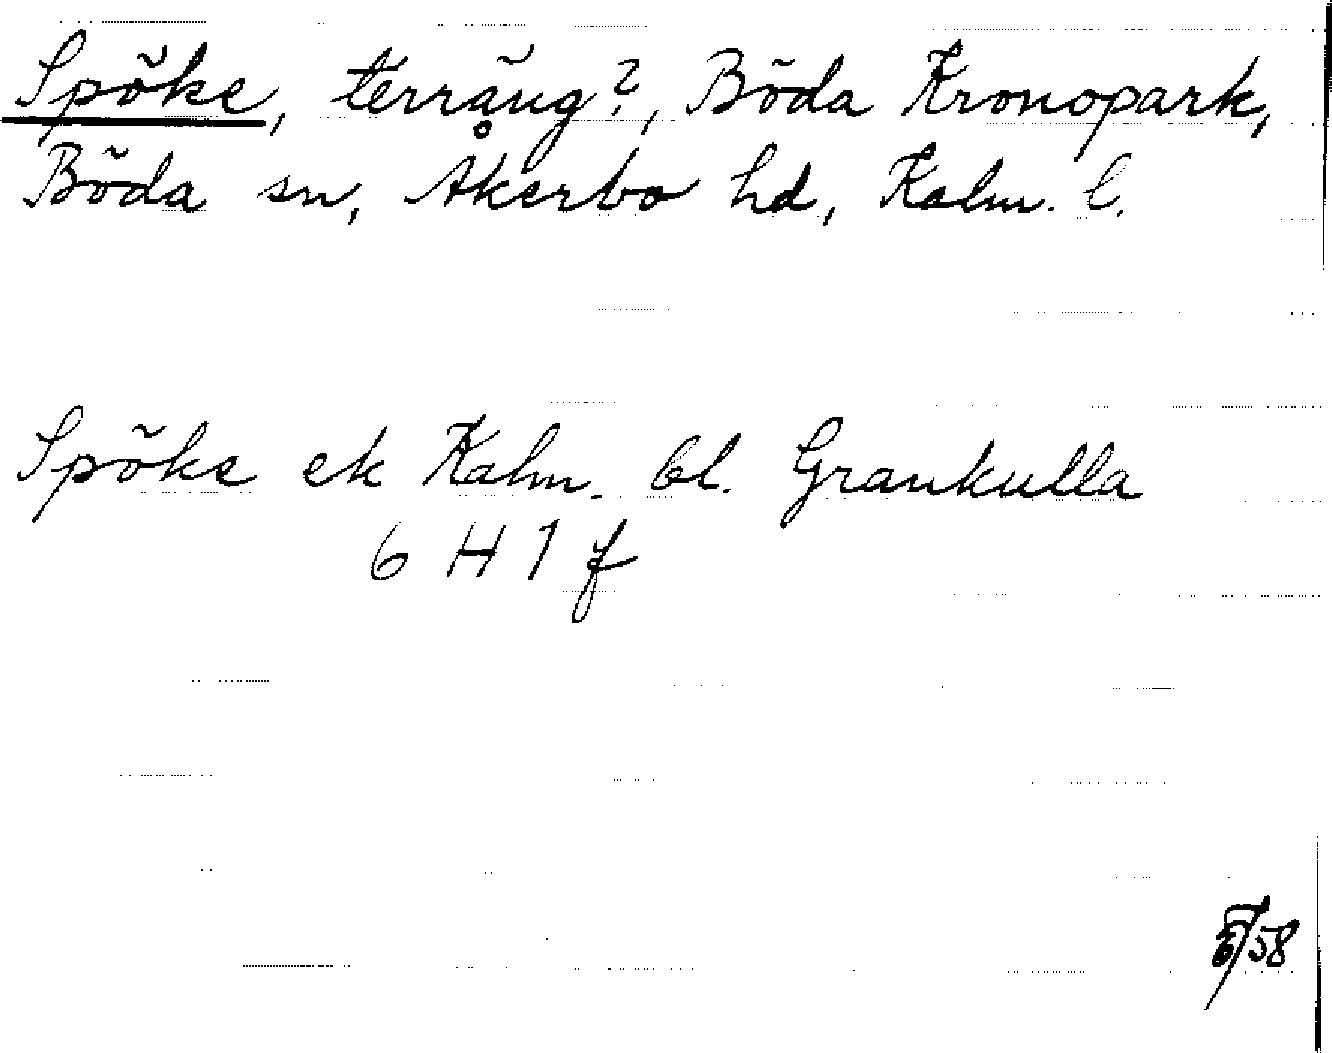 Spöke, terräng?, Böda Kronopark,
Böda sn, Åkerbo hd, Kalm. l.
Spöke ek Kalm. bl. Grankulla
6 H 1 f
58